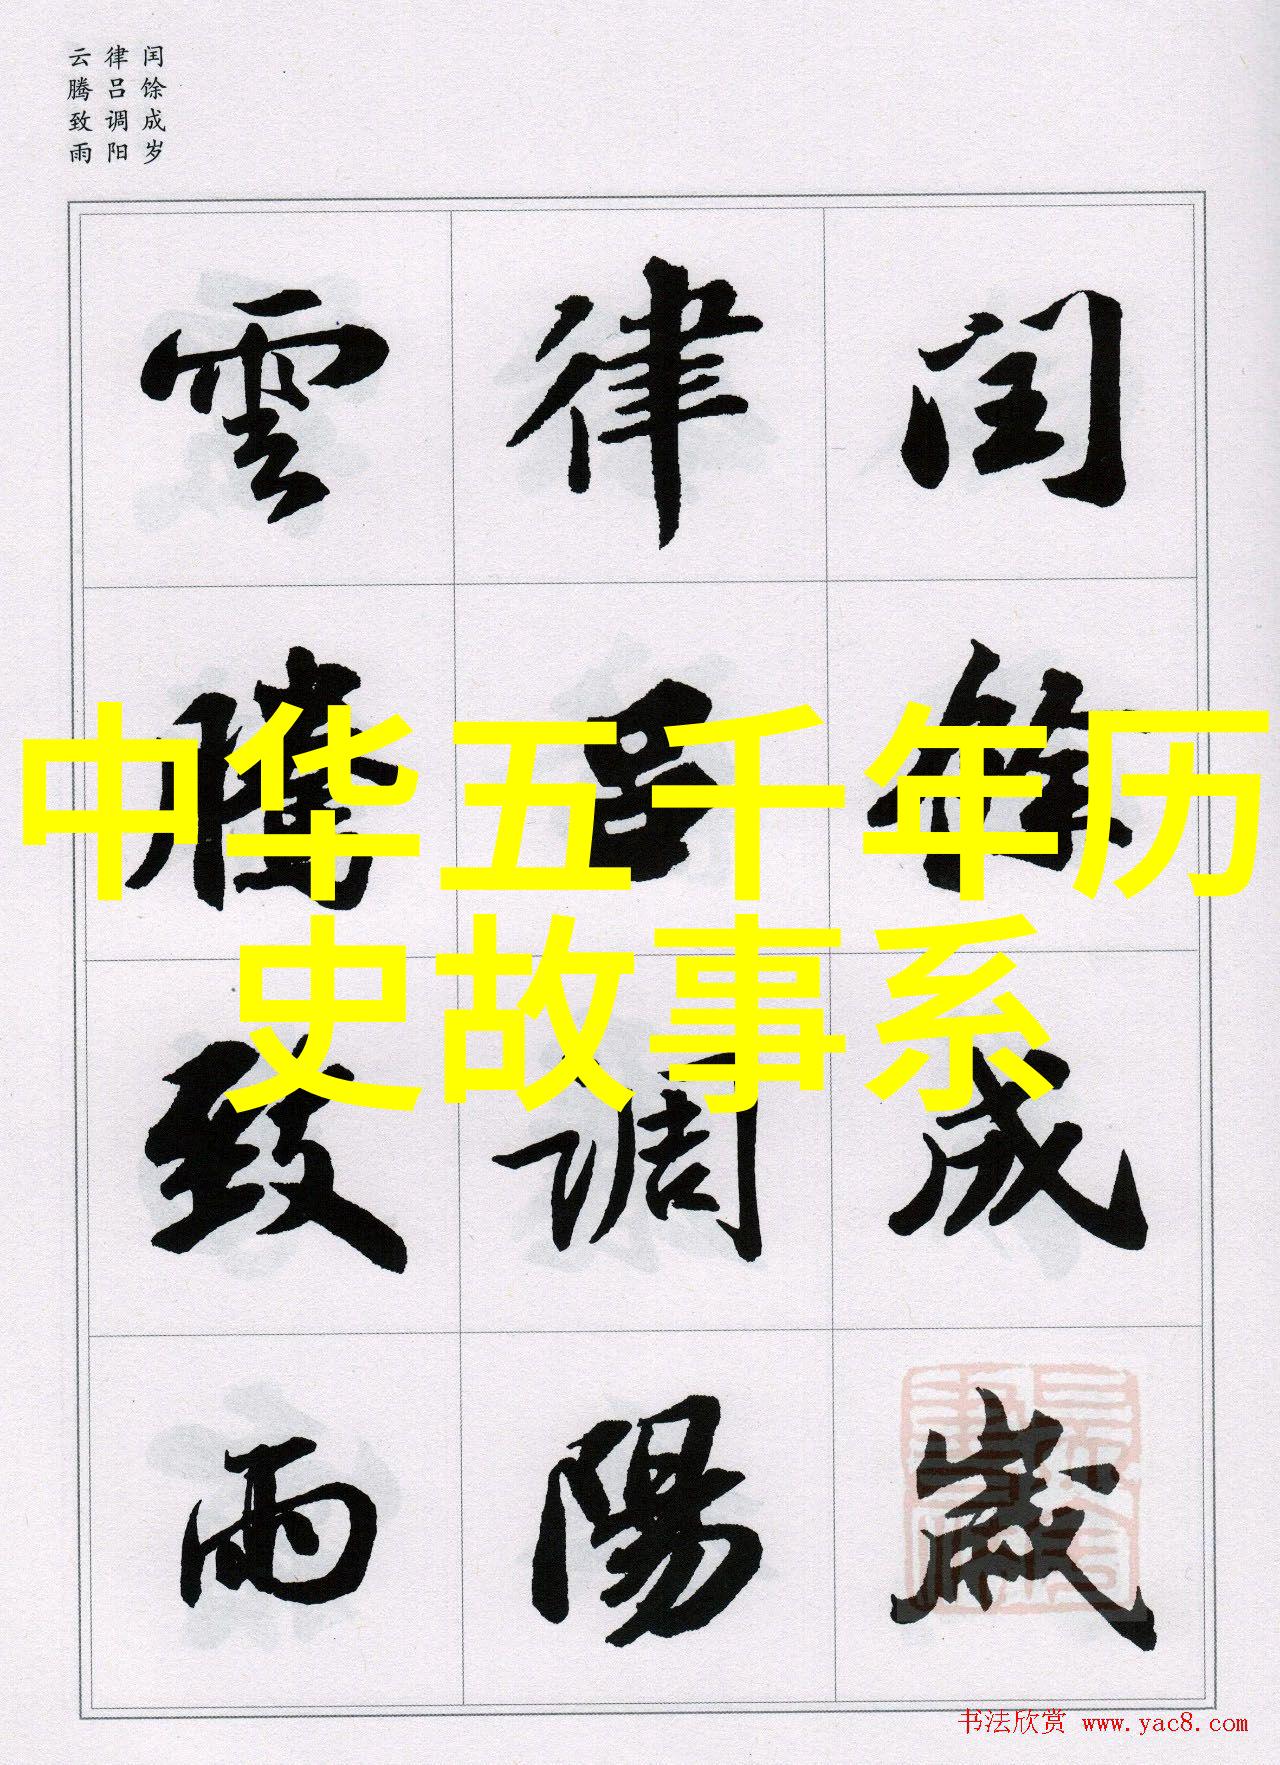 闰馀成岁
律吕调阳
云腾致雨
闰馀成歲
律吕調陽
雲騰致雨
中华五千年历
史故事系
书法欣赏 www.yac8.com